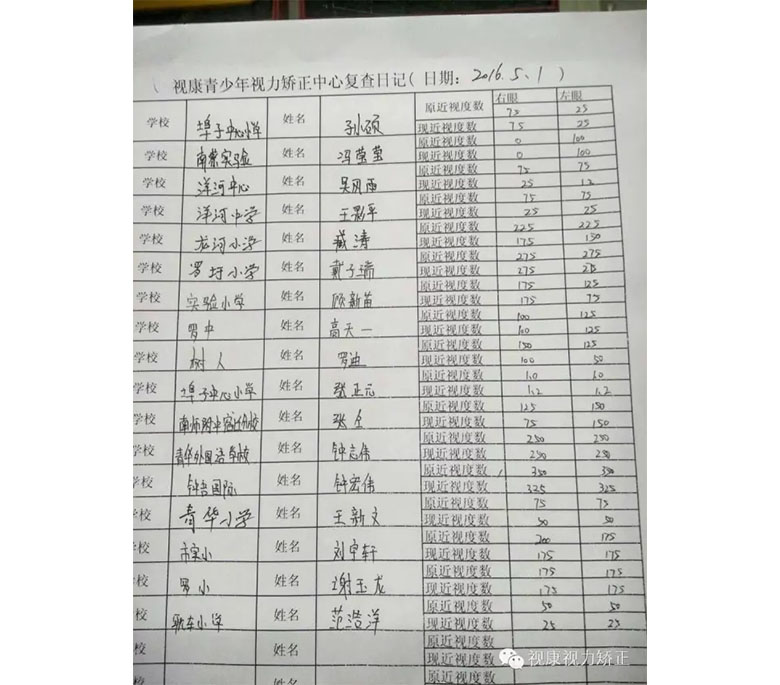 视康青少年视力矫正中心复查日记(日期: 2016.5.1)
右眼 左眼
学校 埠子中心小学 姓名 孙硕 原近视度数 75 25
现近视度数 75 25
学校 南蔡实验 姓名 冯莹莹 原近视度数 0 100
现近视度数 0 100
学校 洋河中心 姓名 吴风雨 原近视度数 75 75
现近视度数 25 12
学校 洋河中学 姓名 王影平 原近视度数 75 75
现近视度数 25 25
学校 龙河小学 姓名 臧涛 原近视度数 225 225
现近视度数 175 150
学校 罗圩小学 姓名 戴子瑞 原近视度数 275 275
现近视度数 275
学校 实验小学 姓名 顾新苗 原近视度数 175 125
现近视度数 175 75
学校 罗中 姓名 高天一 原近视度数 100 125
现近视度数 100 125
学校 树人 姓名 罗迪 原近视度数 150 125
现近视度数 100 50
学校 埠子中心小学 姓名 张正元 原近视度数 1.0 1.0
现近视度数 1.2 1.2
学校 南师附中宿迁分校 姓名 张仝 原近视度数 125 150
现近视度数 75 150
学校 青华外国语学校 姓名 钟志伟 原近视度数 250 250
现近视度数 250 250
学校 钟吾国际 姓名 钟宏伟 原近视度数 350 350
现近视度数 325 325
学校 青华小学 姓名 王新文 原近视度数 75 75
现近视度数 50 50
校 市实小 姓名 刘宇轩 原近视度数 200 175
现近视度数 175 175
校 罗小 姓名 谢玉龙 原近视度数 175 175
现近视度数 175 175
校 耿车小学 姓名 范浩洋 原近视度数 50 50
现近视度数 25 25
校 姓名 原近视度数
现近视度数
原近视度数
视康视力矫正